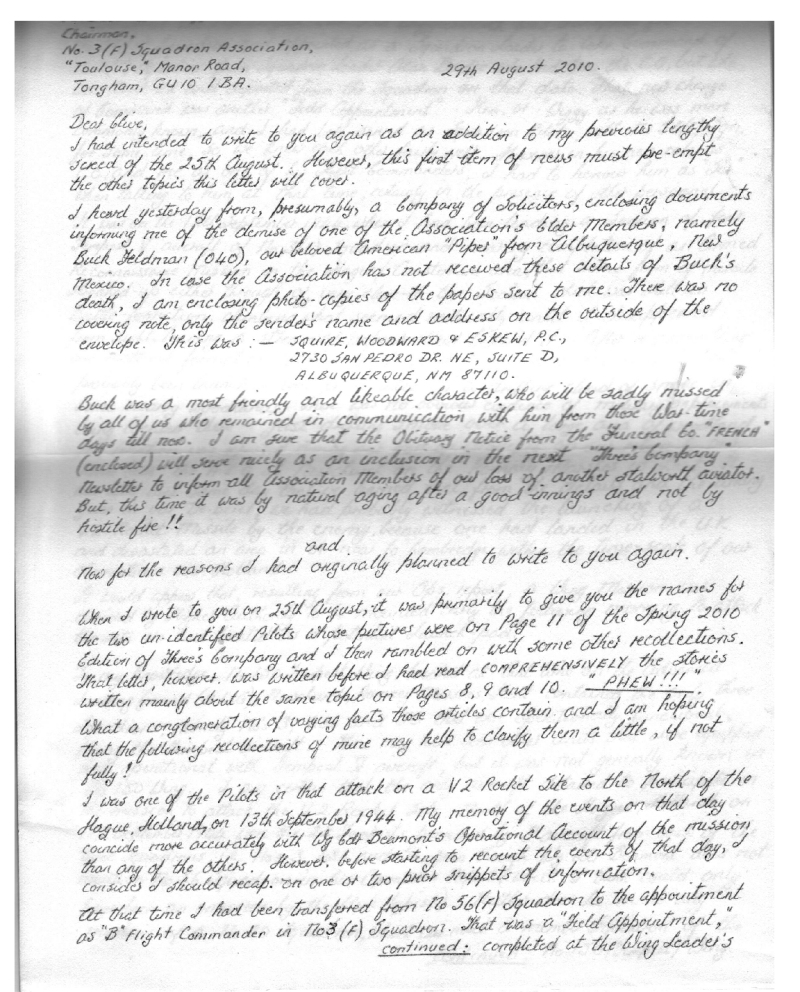 Chairman,
No. 3 (F) Squadron Association,
"Toulouse," Manor Road,
Tongham, GU10 1BA.
29th August 2010.
Dear Clive,
I had intended to write to you again as an addition to my previous lengthy
screed of the 25th August. However, this first item of news must pre-empt
the other topics this letter will cover.
I heard yesterday from, presumably, a Company of Solicitors, enclosing documents
informing me of the demise of one of the Association's Elder Members, namely
Buck Feldman (040), our beloved American "Piper" from Albuquerque, New
Mexico. In case the Association has not received these details of Buck's
death, I am enclosing photo-copies of the papers sent to me. There was no
covering note, only the sender's name and address on the outside of the
envelope. This was :— SQUIRE, WOODWARD & ESKEW, P.C.,
2730 SAN PEDRO DR. NE, SUITE D,
ALBUQUERQUE, NM 87110.
Buck was a most friendly and likeable character, who will be sadly missed
by all of us who remained in communication with him from those War-time
days till now. I am sure that the Obituary Notice from the Funeral Co. "FRENCH"
(enclosed) will serve nicely as an inclusion in the next "Three's Company"
Newsletter to inform all Association Members of our loss of another stalworth aviator.
But, this time it was by natural aging after a good innings and not by
hostile fire!!
and
Now for the reasons I had originally planned to write to you again.
When I wrote to you on 25th August, it was primarily to give you the names for
the two un-identified Pilots whose pictures were on Page 11 of the Spring 2010
Edition of Three's Company and I then rambled on with some other recollections.
That letter, however, was written before I had read COMPREHENSIVELY the stories
written mainly about the same topic on Pages 8, 9 and 10. "PHEW!!!"
What a conglomeration of varying facts those articles contain and I am hoping
that the following recollections of mine may help to clarify them a little, if not
fully!
I was one of the Pilots in that attack on a V2 Rocket Site to the North of the
Hague, Holland, on 13th September 1944. My memory of the events on that day
coincide more accurately with Wg Cdr Beamont's Operational Account of the mission,
than any of the others. However, before starting to recount the events of that day, I
consider I should recap. on one or two prior snippets of information.
At that time I had been transferred from No 56(F) Squadron to the appointment
as "B" Flight Commander in No3 (F) Squadron. That was a "Field Appointment,"
continued: completed at the Wing Leader's